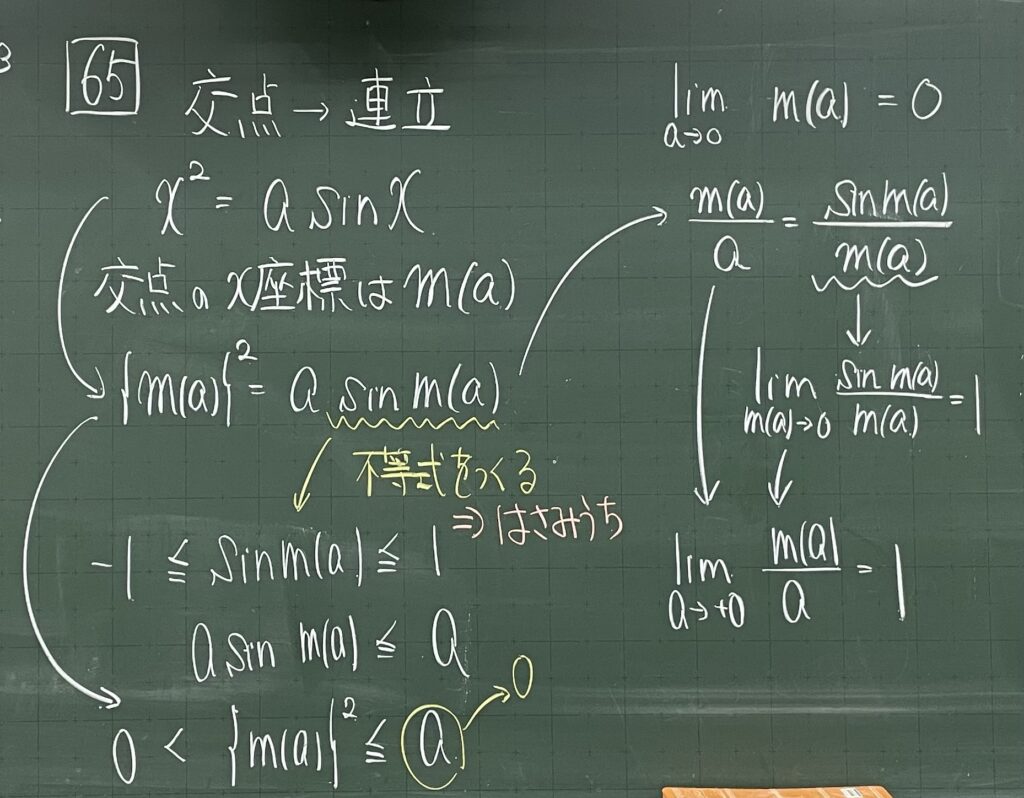 65
交点→連立
x² = a sin x
交点のx座標は m(a)
{m(a)}² = a sin m(a)
不等式をつくる
⇒はさみうち
-1 ≦ sin m(a) ≦ 1
a sin m(a) ≦ a
0 < {m(a)}² ≦ a → 0
lim a→0 m(a) = 0
m(a)/a = sin m(a)/m(a)
lim m(a)→0 sin m(a)/m(a) = 1
lim a→+0 m(a)/a = 1